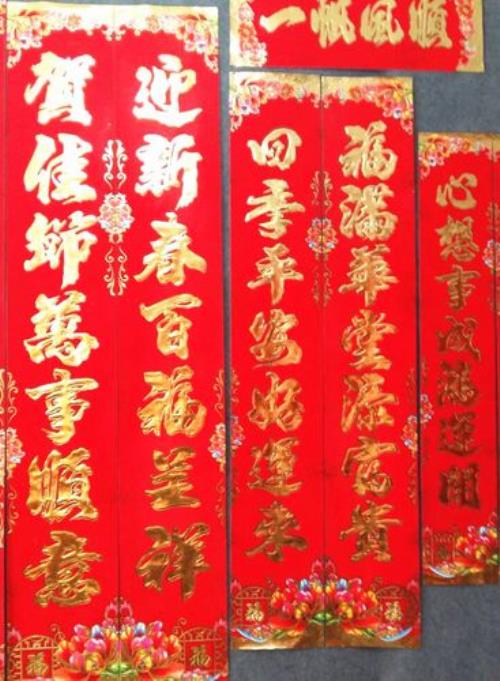 一帆風順
迎新春百福呈祥
賀佳節萬事順意
福滿華堂添富貴
四季平安好運來
心想事成鴻運開
福
福
福
福